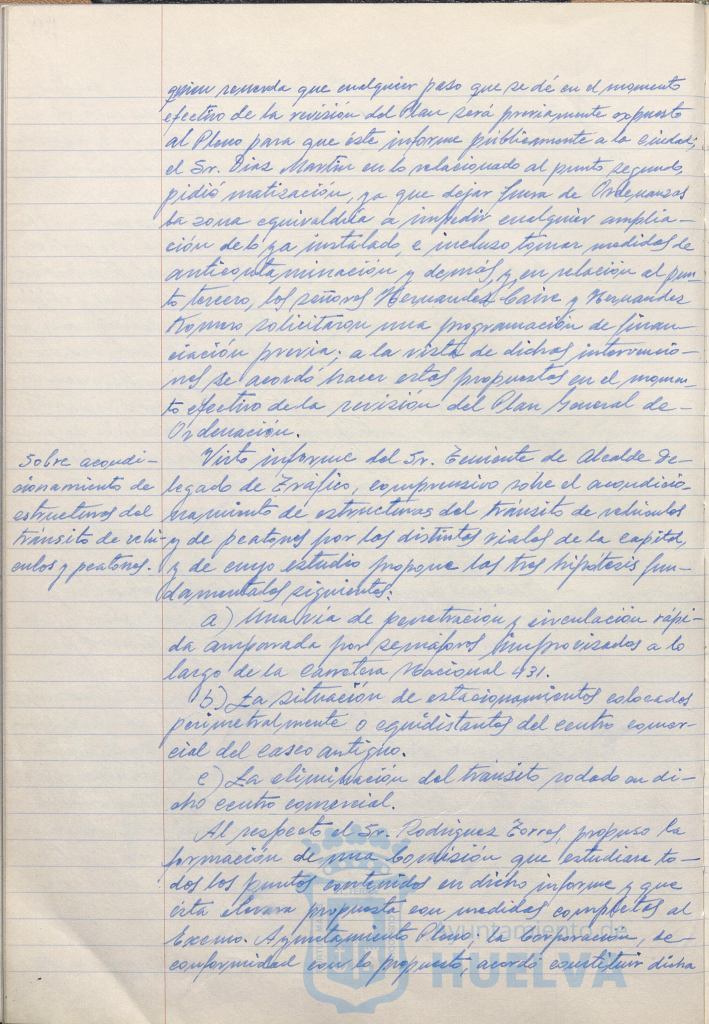 quien recuerda que cualquier paso que se dé en el momento
efectivo de la revisión del Plan será previamente expuesto
al Pleno para que éste informe públicamente a la ciudad;
el Sr. Díaz Martín en lo relacionado al punto segundo,
pidió matización, ya que dejar fuera de Ordenanzas
la zona equivaldría a impedir cualquier amplia-
ción de lo ya instalado, e incluso tomar medidas de
anticontaminación y demás, y, en relación al pun-
to tercero, los señores Hernandez y Hernandez
Romero solicitaron una programación de finan-
ciación previa; a la vista de dichas intervencio-
nes se acordó hacer estas propuestas en el momen-
to efectivo de la revisión del Plan General de
Ordenación.
Sobre acondi-
cionamiento de
estructuras del
tránsito de vehí-
culos y peatones.
Visto informe del Sr. Teniente de Alcalde De-
legado de Tráfico, comprensivo sobre el acondicio-
namiento de estructuras del tránsito de vehículos
y de peatones por los distintos viales de la capital,
y de cuyo estudio propone las tres hipótesis fun-
damentales siguientes:
a) Una vía de penetración y circulación rápi-
da amparada por semáforos a lo
largo de la Carretera Nacional 431.
b) La situación de estacionamientos colocados
perimetralmente o equidistantes del centro comer-
cial del casco antiguo.
c) La eliminación del tránsito rodado en di-
cho centro comercial.
Al respecto el Sr. Rodriguez Torres, propuso la
formación de una Comisión que estudiara to-
dos los puntos contenidos en dicho informe y que
ésta elevara propuesta con medidas completas al
Excmo. Ayuntamiento Pleno; la Corporación, de
conformidad con lo propuesto, acordó constituir dicha
Ayuntamiento de
HUELVA